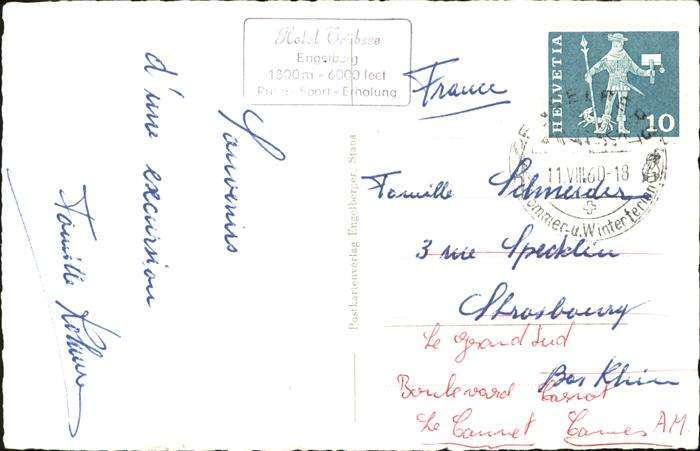 Hotel Trübsee
Engelberg
1800m - 6000 feet
Ruhe - Sport - Erholung
Souvenirs
d'une excursion
Famille
Postkartenverlag Engelberger, Stans
HELVETIA
10
11.VIII.60-18
Sommer-u.Winterferien
France
Famille Schneider
3 rue Specklin
Strasbourg
Bas Rhin
Le Grand Sud
Boulevard Carnot
Le Cannet Cannes A.M.